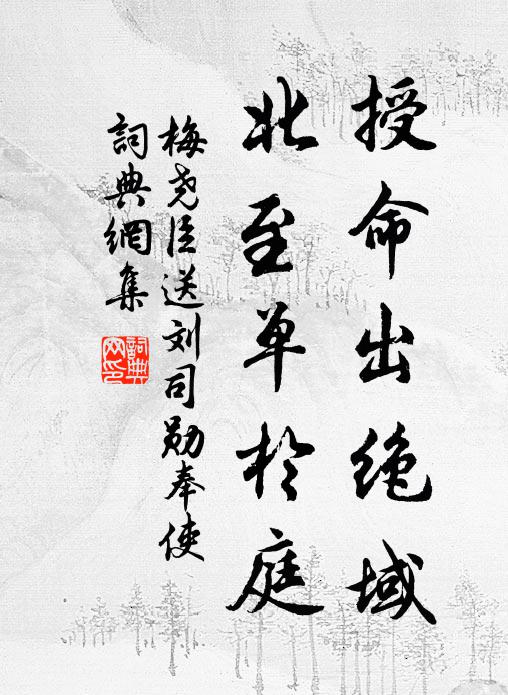 授命出绝域
北至单於庭
梅尧臣送刘司勋奉使
詞典網集
詞典
网印